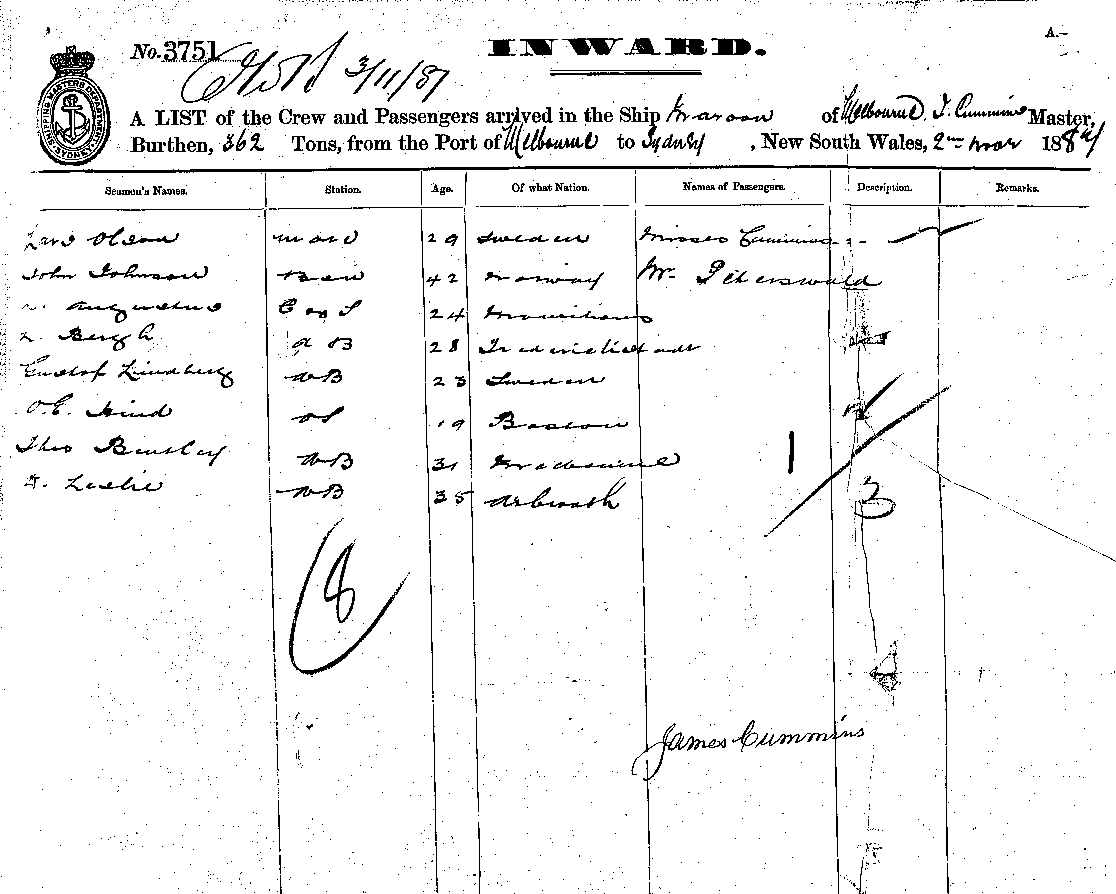 No. 3751 INWARD. A.-
3/11/87
A LIST of the Crew and Passengers arrived in the Ship Maroon of Melbourne, J. Cummins Master,
Burthen, 362 Tons, from the Port of Melbourne to Sydney, New South Wales, 2nd Nov 1887
SHIPPING MASTERS DEPARTMENT SYDNEY
Seamen's Names. Station. Age. Of what Nation. Names of Passengers. Description. Remarks.
Lars Olsen Mate 29 Sweden Misses Cummins 2
John Johnson 42 Norway Mr.
Augustus 24
Bergh AB 28 Frederickstadt
Gustof Lindberg AB 23 Sweden
O.E. Hind OS 19 Boston
Thos Bentley AB 31
Leslie AB 35 Arbroath
1
3
8
James Cummins